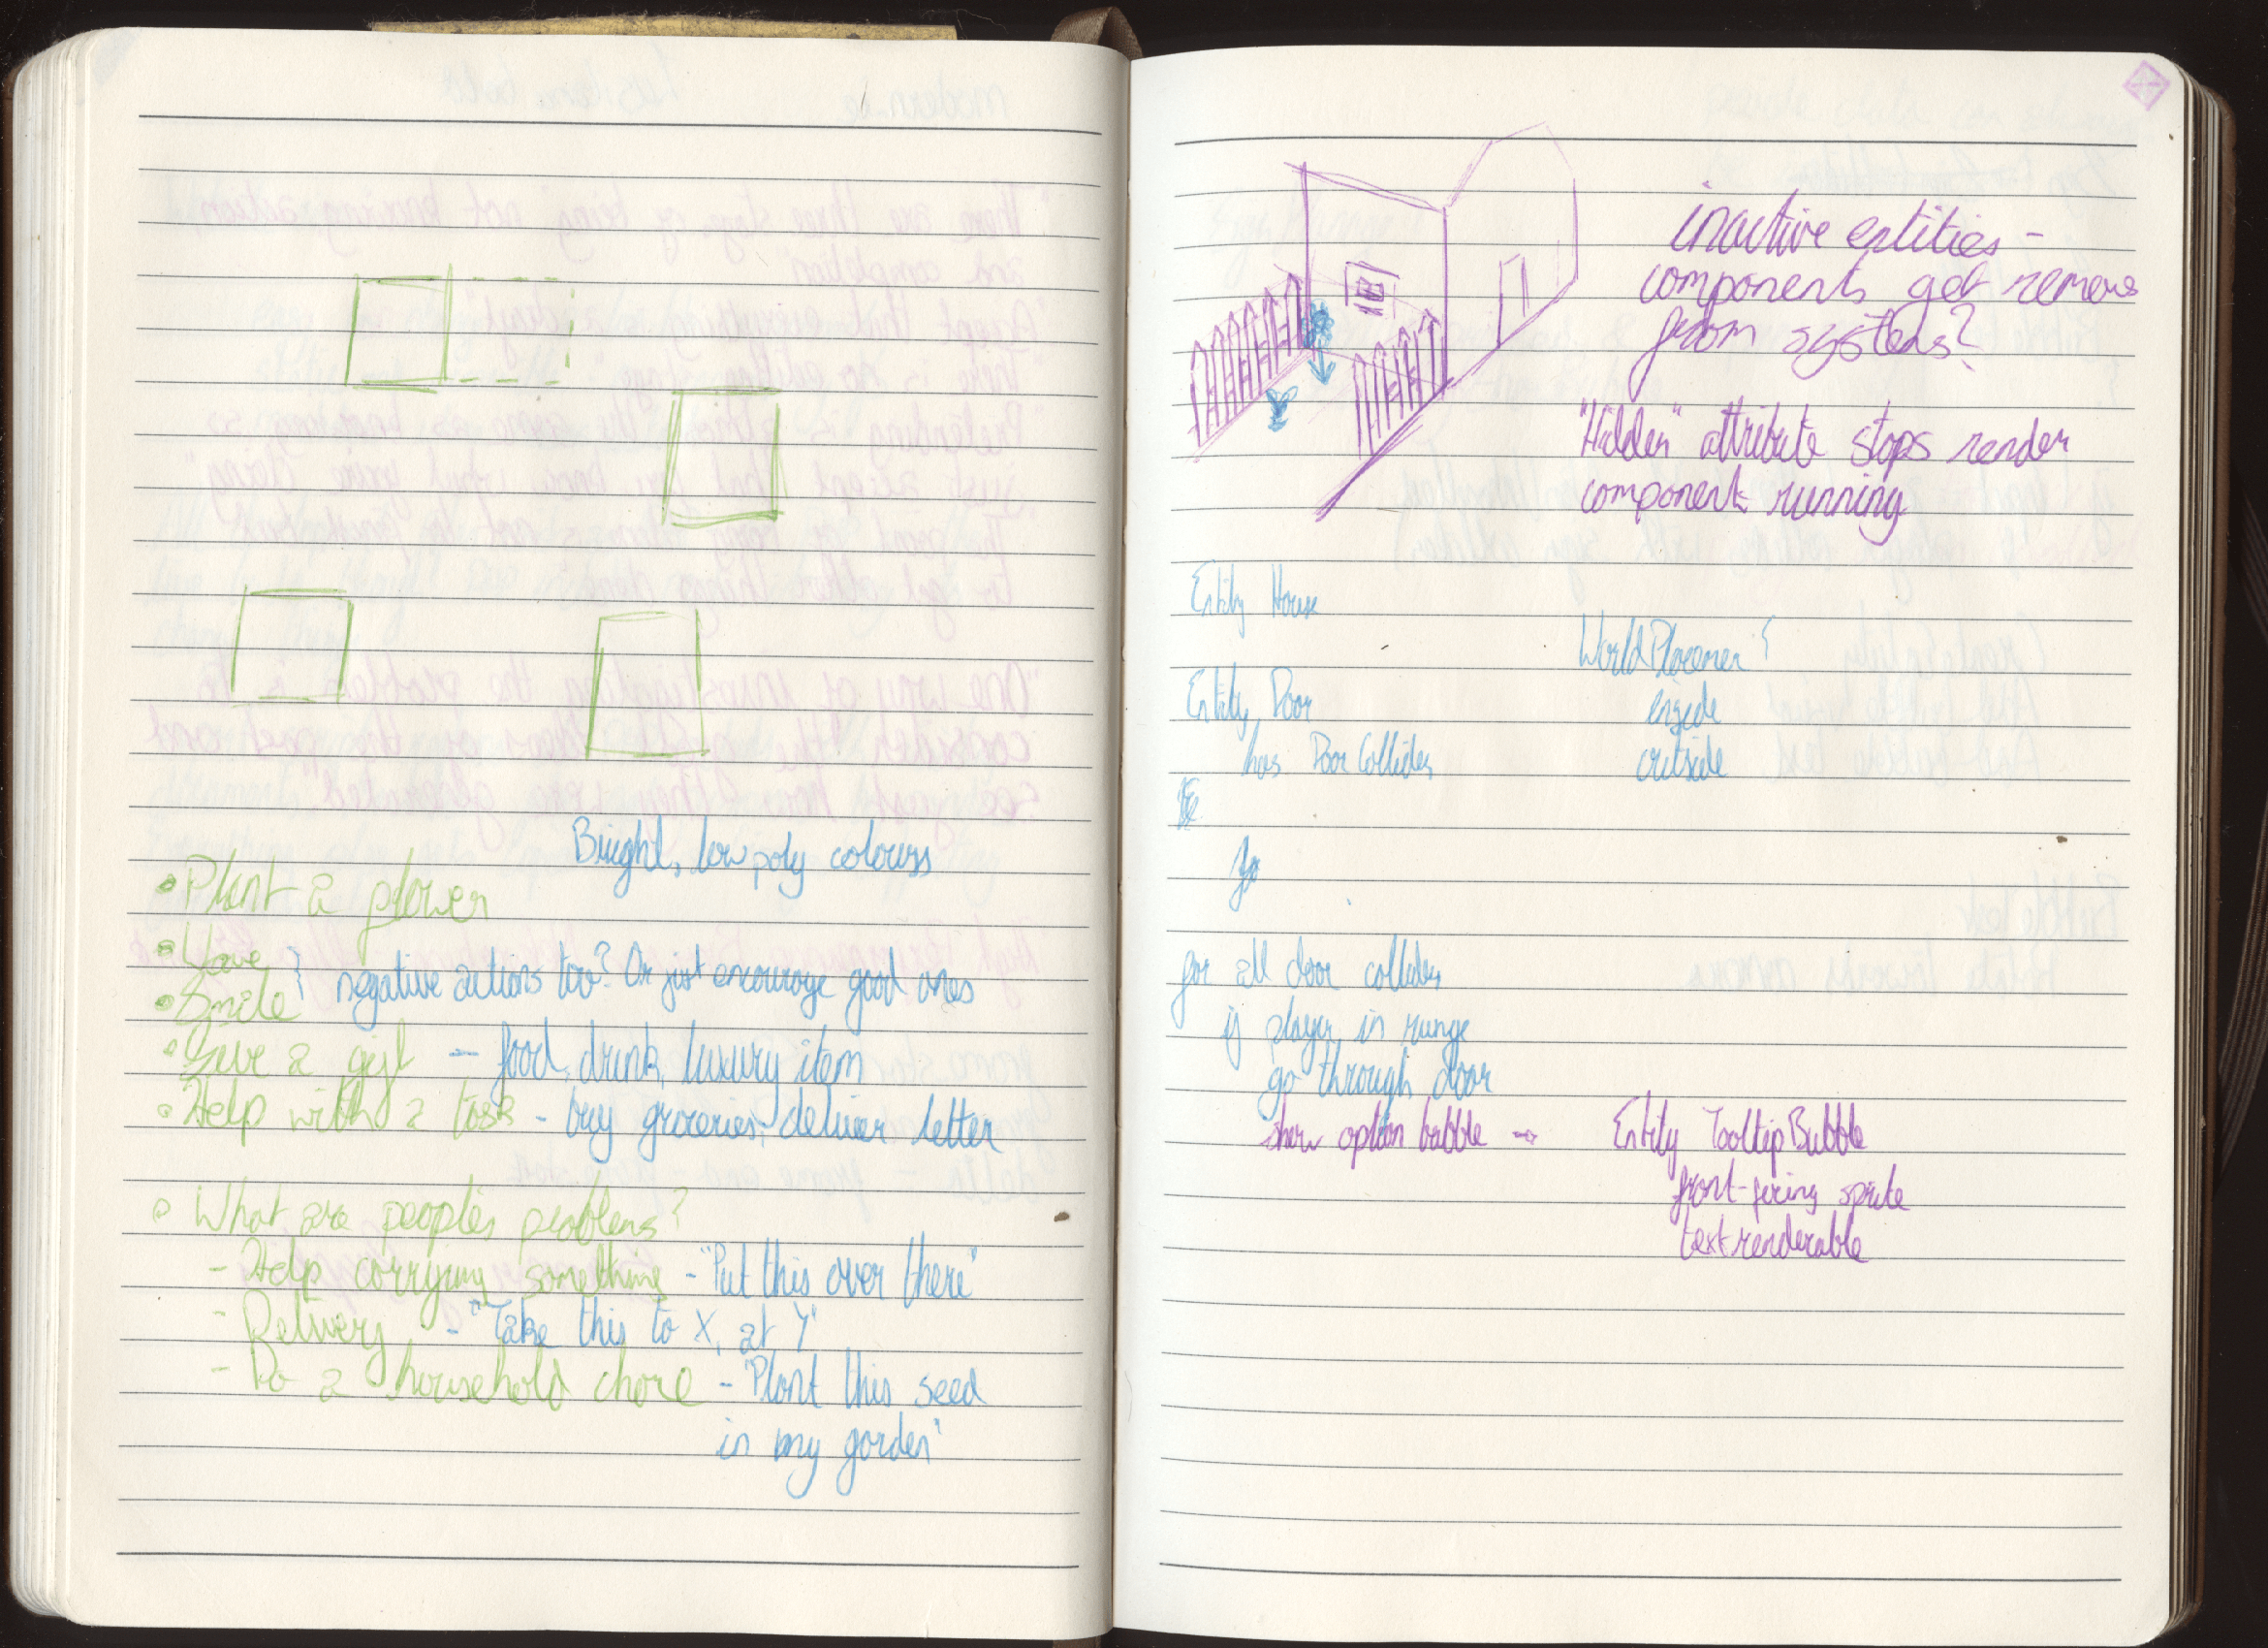 Bright, low poly colours
• Plant a flower
• Wave
• Smile } negative actions too? Or just encourage good ones
• Give a gift - food, drink, luxury item
• Help with a task - buy groceries, deliver letter
• What are people's problems?
- Help carrying something - "Put this over there"
- Delivery - "Take this to X, at Y"
- Do a household chore - "Plant this seed
in my garden"
inactive entities -
components get remove
from systems?
"Hidden" attribute stops render
component running
Entity House
WorldPlacement {
Entity Door
inside
has DoorCollider
outside
for all door colliders
if player in range
go through door
show option bubble → Entity TooltipBubble
front-facing sprite
text renderable